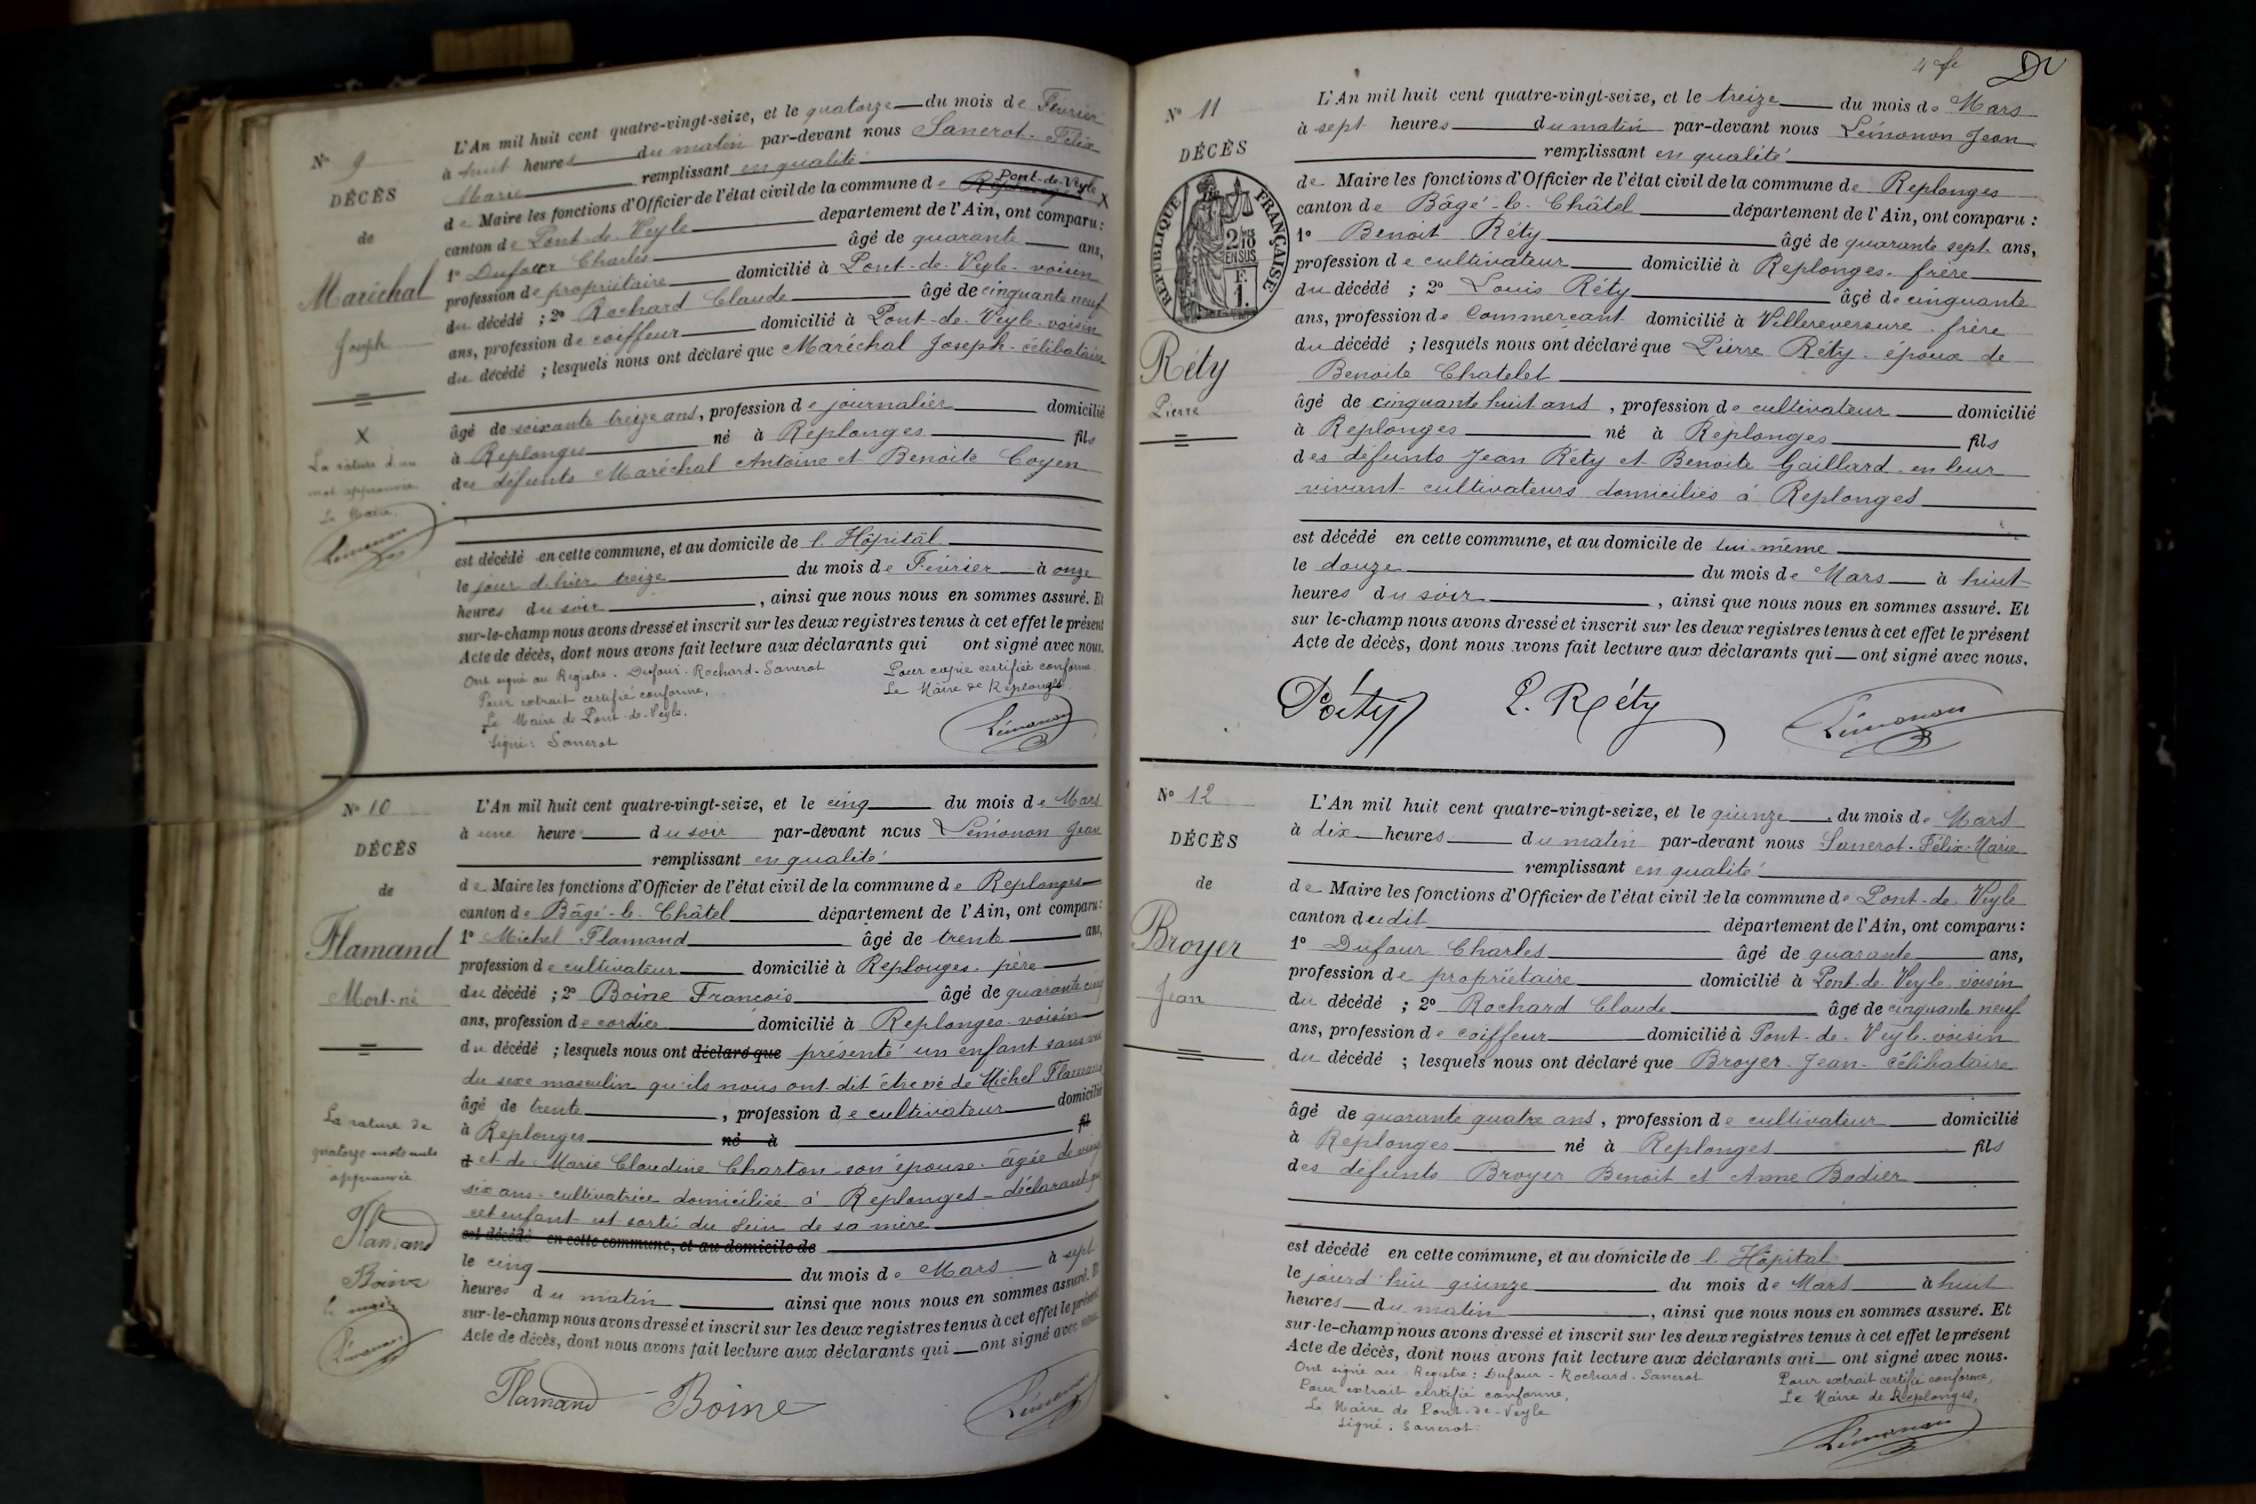 N° 9
DÉCÈS
de
Maréchal
Joseph
X
La rature d'un
mot approuvée
Le Maire,
Lémonon
L'An mil huit cent quatre-vingt-seize, et le quatorze du mois de Février
à huit heures du matin par-devant nous Sanerot Félix
Marie remplissant en qualité
de Maire les fonctions d'Officier de l'état civil de la commune de Replonges Pont-de-Veyle X
canton de Pont-de-Veyle département de l'Ain, ont comparu :
1° Dufour Charles âgé de quarante ans,
profession de propriétaire domicilié à Pont-de-Veyle voisin
du décédé ; 2° Rochard Claude âgé de cinquante neuf
ans, profession de coiffeur domicilié à Pont-de-Veyle voisin
du décédé ; lesquels nous ont déclaré que Maréchal Joseph célibataire
âgé de soixante treize ans, profession de journalier domicilié
à Replonges né à Replonges fils
des défunts Maréchal Antoine et Benoite Coyen
est décédé en cette commune, et au domicile de l'Hôpital
le jour d'hier treize du mois de Février à onze
heures du soir, ainsi que nous nous en sommes assuré. Et
sur-le-champ nous avons dressé et inscrit sur les deux registres tenus à cet effet le présent
Acte de décès, dont nous avons fait lecture aux déclarants qui ont signé avec nous.
Ont signé au Registre. Dufour. Rochard. Sanerot
Pour extrait certifié conforme,
Le Maire de Pont-de-Veyle.
Signé : Sanerot
Pour copie certifiée conforme
Le Maire de Replonges.
Lémonon
N° 10
DÉCÈS
de
Flamand
Mort-né
La rature de
quatorze mots nuls
approuvée
Flamand
Boine
Le maire
Lémonon
L'An mil huit cent quatre-vingt-seize, et le cinq du mois de Mars
à une heure du soir par-devant nous Lémonon Jean
remplissant en qualité
de Maire les fonctions d'Officier de l'état civil de la commune de Replonges
canton de Bâgé-le-Châtel département de l'Ain, ont comparu :
1° Michel Flamand âgé de trente ans,
profession de cultivateur domicilié à Replonges. père
du décédé ; 2° Boine François âgé de quarante cinq
ans, profession de cordier domicilié à Replonges voisin
du décédé ; lesquels nous ont déclaré que présenté un enfant sans vie
du sexe masculin qu'ils nous ont dit être né de Michel Flamand
âgé de trente, profession de cultivateur domicilié
à Replonges né à fil
d et de Marie Claudine Charton son épouse. âgée de vingt
six ans. cultivatrice domiciliée à Replonges - déclarant que
cet enfant est sorti du sein de sa mère
est décédé en cette commune, et au domicile de
le cinq du mois de Mars à sept
heures du matin ainsi que nous nous en sommes assuré. Et
sur-le-champ nous avons dressé et inscrit sur les deux registres tenus à cet effet le présent
Acte de décès, dont nous avons fait lecture aux déclarants qui ont signé avec nous.
Flamand Boine Lémonon
N° 11
DÉCÈS
RÉPUBLIQUE FRANÇAISE
2/10 EN SUS
F.
1.
Réty
Pierre
L'An mil huit cent quatre-vingt-seize, et le treize du mois de Mars
à sept heures du matin par-devant nous Lémonon Jean
remplissant en qualité
de Maire les fonctions d'Officier de l'état civil de la commune de Replonges
canton de Bâgé-le-Châtel département de l'Ain, ont comparu :
1° Benoit Réty âgé de quarante sept ans,
profession de cultivateur domicilié à Replonges. frère
du décédé ; 2° Louis Réty âgé de cinquante
ans, profession de Commerçant domicilié à Villereversure. frère
du décédé ; lesquels nous ont déclaré que Pierre Réty. époux de
Benoite Chatelet
âgé de cinquante huit ans, profession de cultivateur domicilié
à Replonges né à Replonges fils
des défunts Jean Réty et Benoite Gaillard en leur
vivant cultivateurs domiciliés à Replonges
est décédé en cette commune, et au domicile de lui-même
le douze du mois de Mars à huit
heures du soir, ainsi que nous nous en sommes assuré. Et
sur-le-champ nous avons dressé et inscrit sur les deux registres tenus à cet effet le présent
Acte de décès, dont nous avons fait lecture aux déclarants qui ont signé avec nous.
Réty L. Réty Lémonon
N° 12
DÉCÈS
de
Broyer
Jean
L'An mil huit cent quatre-vingt-seize, et le quinze du mois de Mars
à dix heures du matin par-devant nous Sanerot. Félix-Marie
remplissant en qualité
de Maire les fonctions d'Officier de l'état civil de la commune de Pont-de-Veyle
canton dudit département de l'Ain, ont comparu :
1° Dufour Charles âgé de quarante ans,
profession de propriétaire domicilié à Pont-de-Veyle voisin
du décédé ; 2° Rochard Claude âgé de cinquante neuf
ans, profession de coiffeur domicilié à Pont-de-Veyle voisin
du décédé ; lesquels nous ont déclaré que Broyer Jean célibataire
âgé de quarante quatre ans, profession de cultivateur domicilié
à Replonges né à Replonges fils
des défunts Broyer Benoit et Anne Bodier
est décédé en cette commune, et au domicile de l'Hôpital
le jourd'hui quinze du mois de Mars à huit
heures du matin, ainsi que nous nous en sommes assuré. Et
sur-le-champ nous avons dressé et inscrit sur les deux registres tenus à cet effet le présent
Acte de décès, dont nous avons fait lecture aux déclarants qui ont signé avec nous.
Ont signé au Registre : Dufour - Rochard. Sanerot
Pour extrait certifié conforme,
Le Maire de Pont-de-Veyle
Signé : Sanerot
Pour extrait certifié conforme,
Le Maire de Replonges,
Lémonon